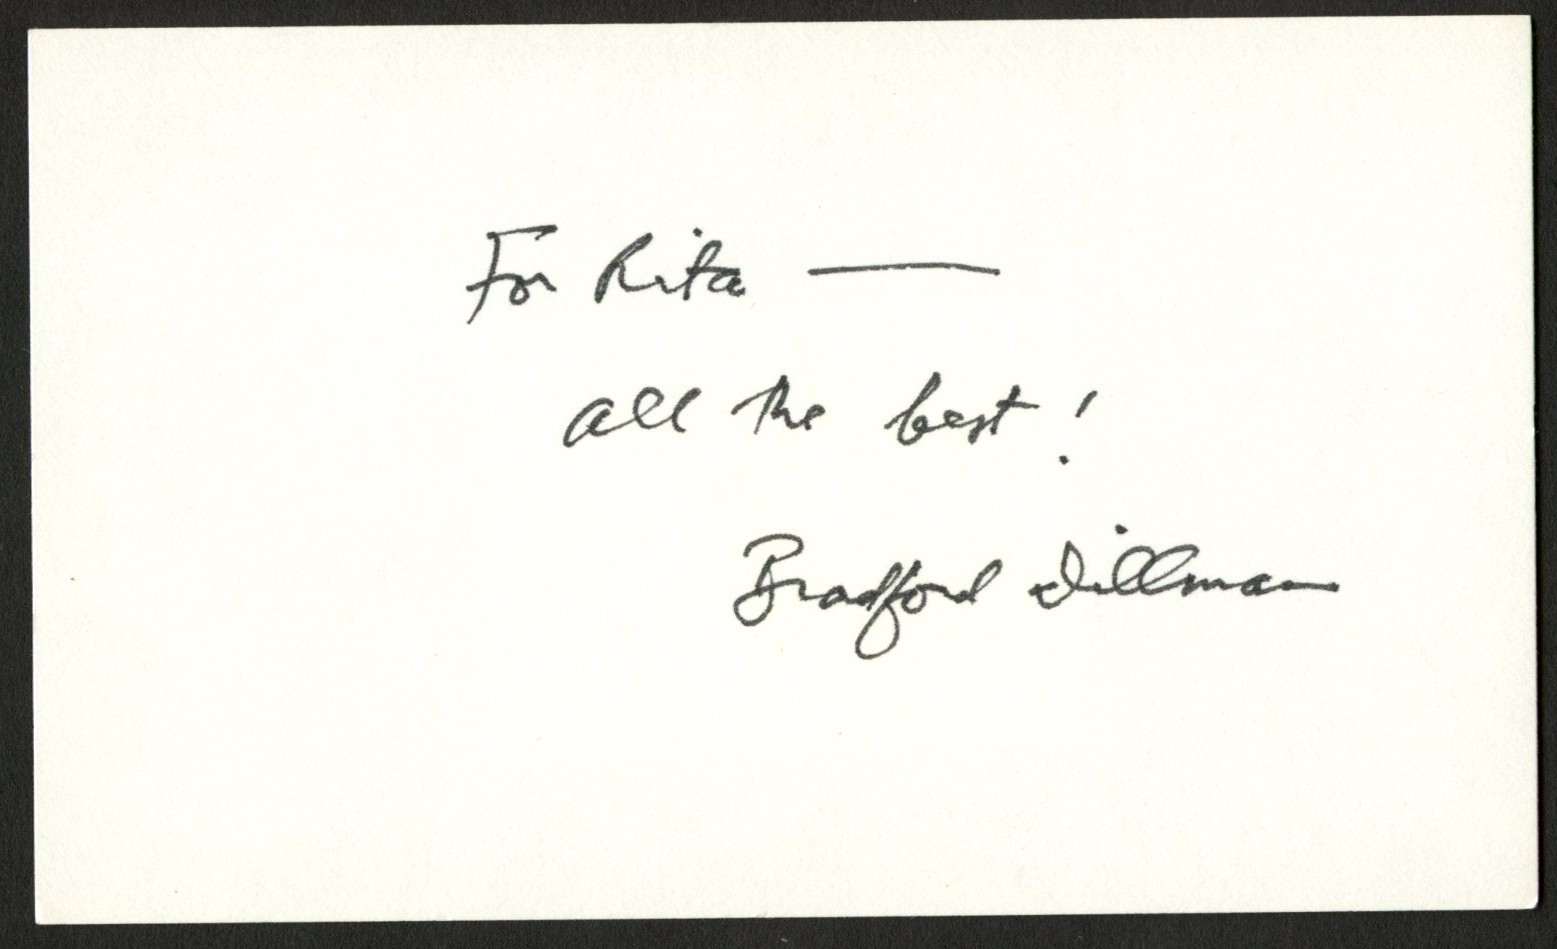 For Rita —
all the best!
Bradford Dillman